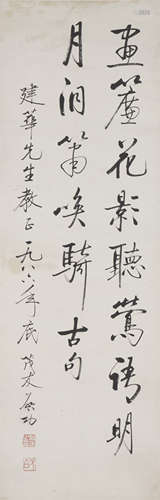 画帘花影聽鶯語明
月洞簫喚騎古句
建華先生教正一九八六年底 啟功